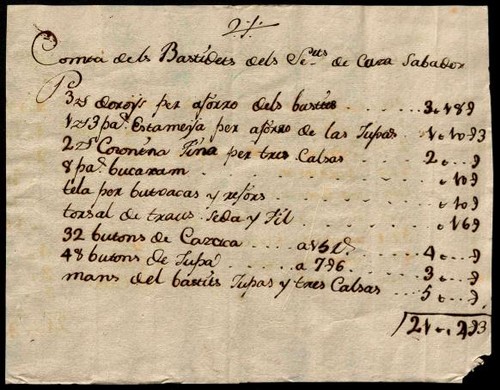 Comta dels Bastidets dels Se.rs de Cara Sabador
3 per aforro dels bastits ... 3 „ 18 9
1 3 pa. Estameya per aforro de las Jupas 1 „ 10 93
2 Cotonina Fina per tres Calsas ... 2 „ ... 9
8 pa. bucaram ... „ 10 9
tela por butxacas y reforç ... „ 10 9
torsal de traus Seda y Fil ... „ 16 9
32 butons de Cazaca ... a ... 4 „ ... 9
48 butons de Jupa ... a 7 96 ... 3 „ ... 9
mans del bastits Jupas y tres Calsas ... 5 „ ... 9
21 „ 4 93